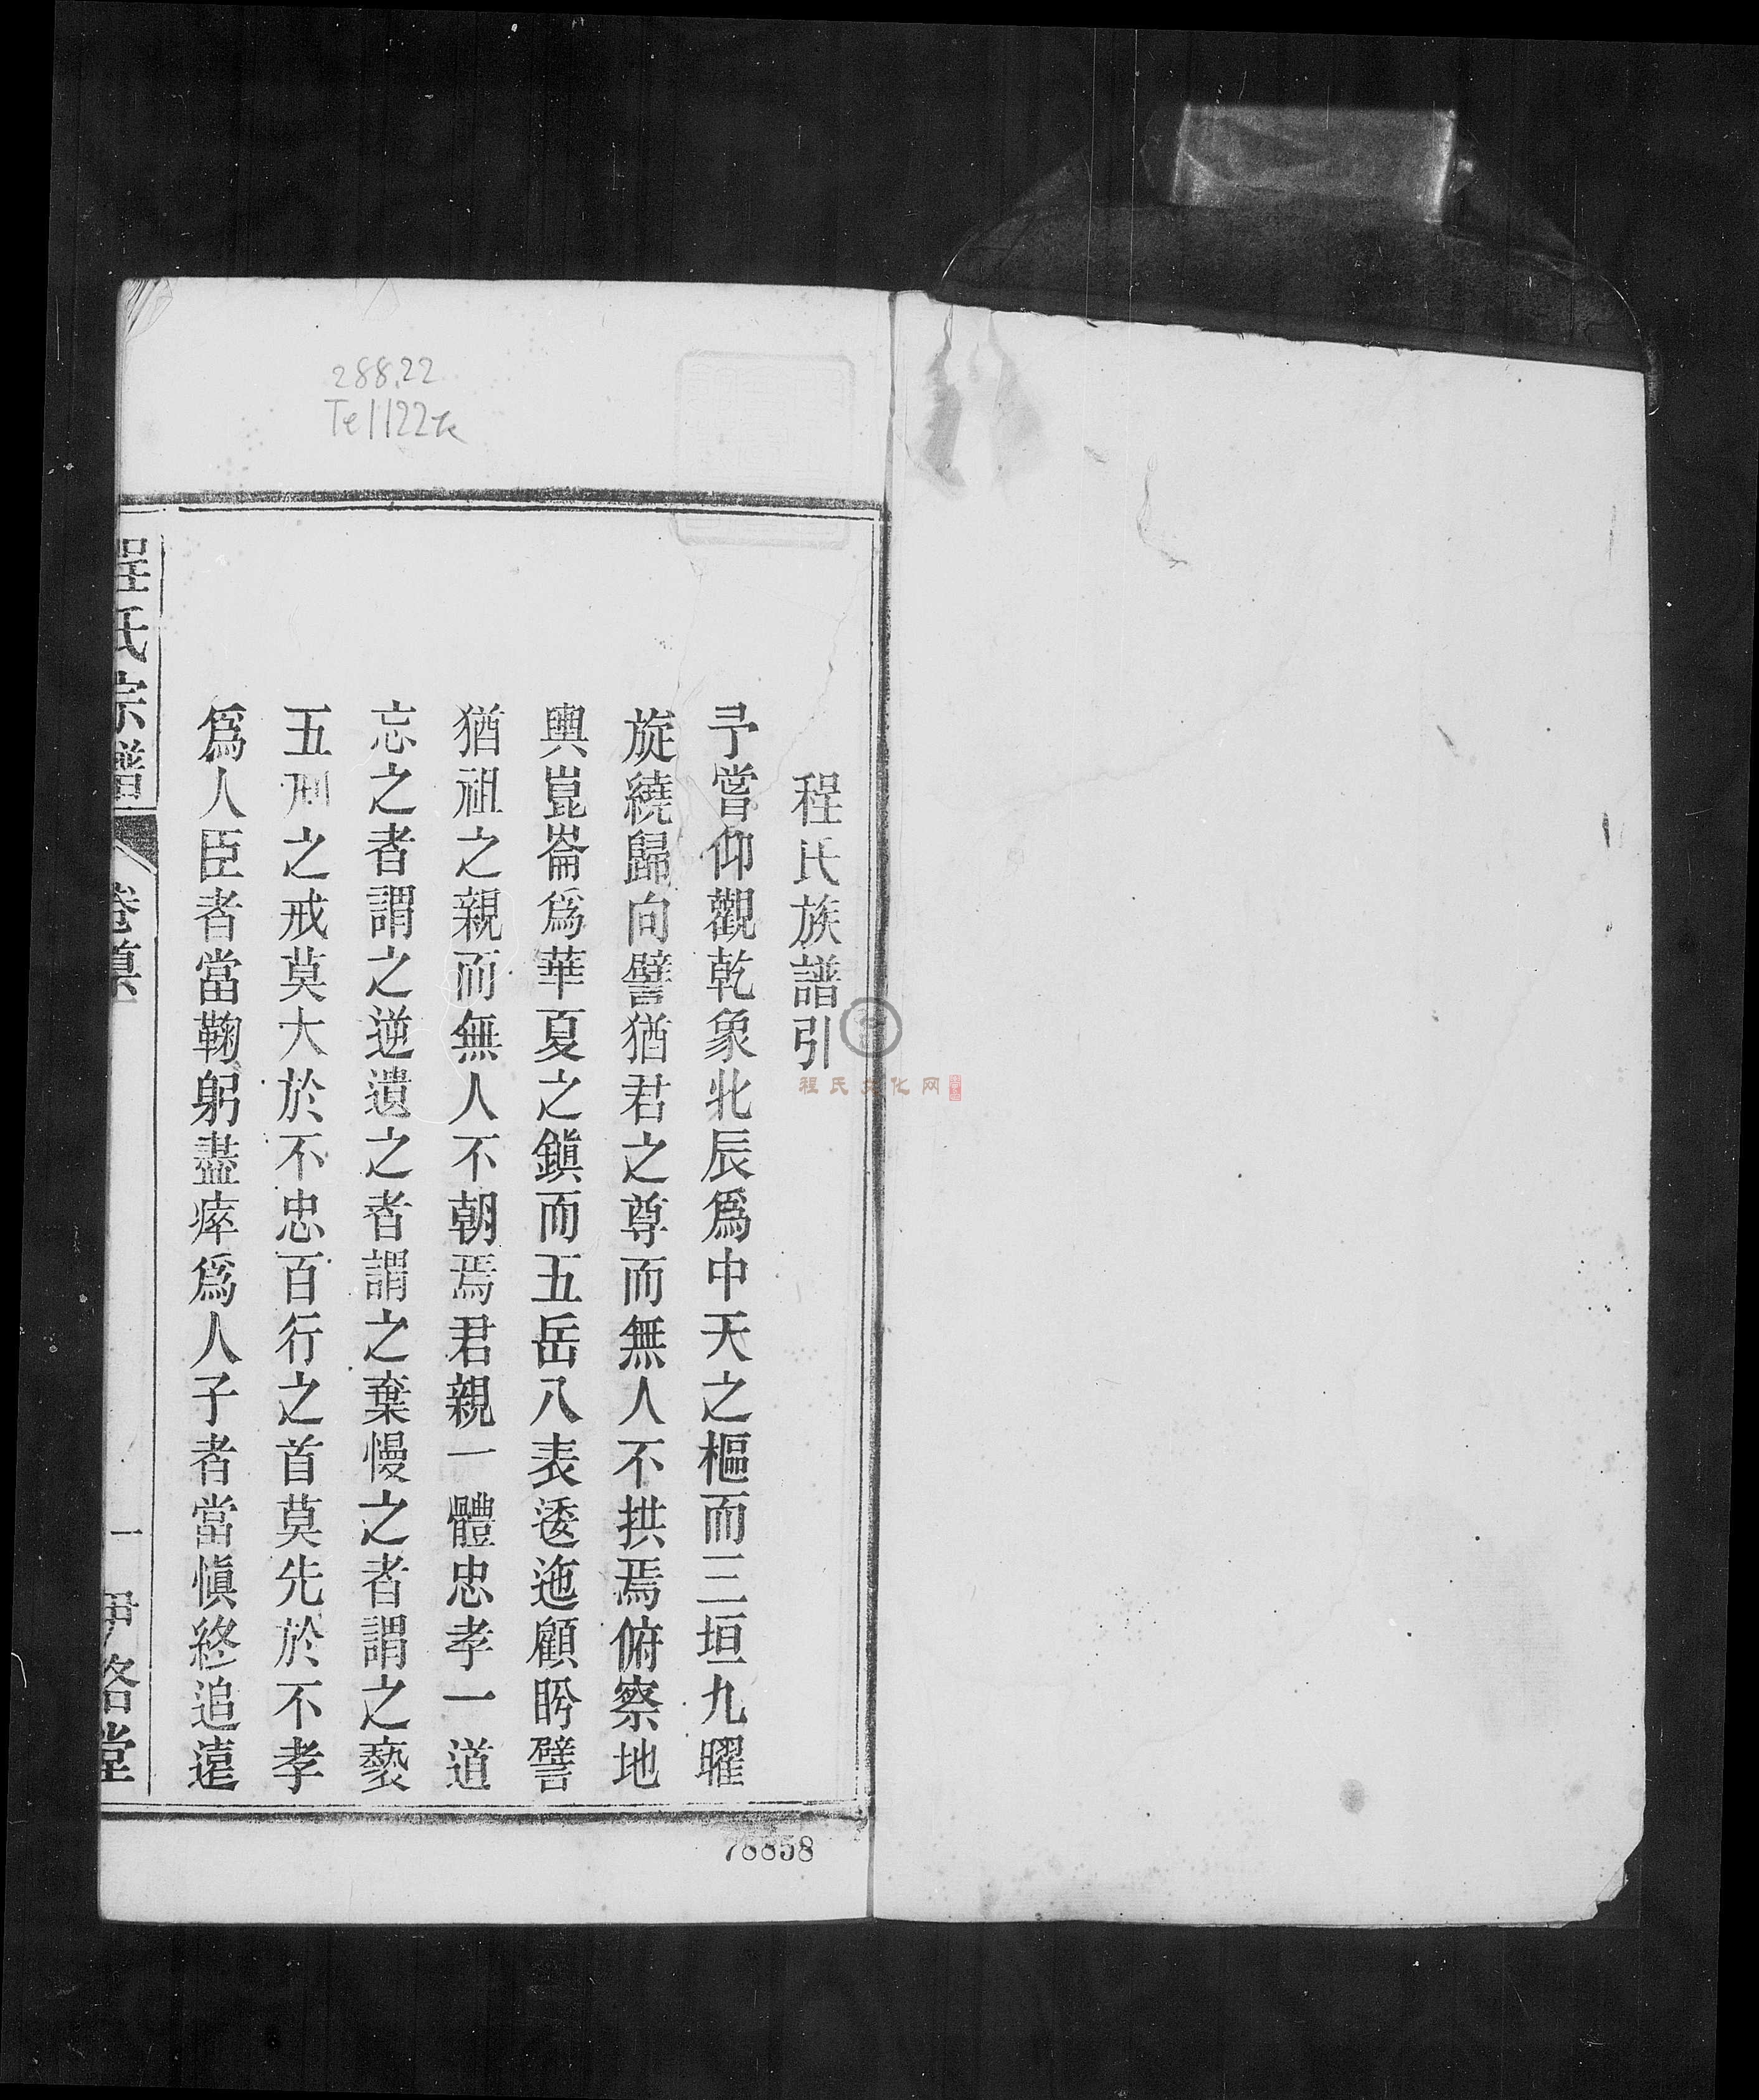 288.22
Te1122k
程氏族譜引
予嘗仰觀乾象北辰爲中天之樞而三垣九曜
旋繞歸向譬猶君之尊而無人不拱焉俯察地
輿崑崙爲華夏之鎭而五岳八表逶迤顧盻譬
猶祖之親而無人不朝焉君親一體忠孝一道
忘之者謂之逆遺之者謂之棄慢之者謂之褻
五刑之戒莫大於不忠百行之首莫先於不孝
爲人臣者當鞠躬盡瘁爲人子者當愼終追遠
程氏宗譜 卷首 一 伊洛堂
78858
程氏文化网